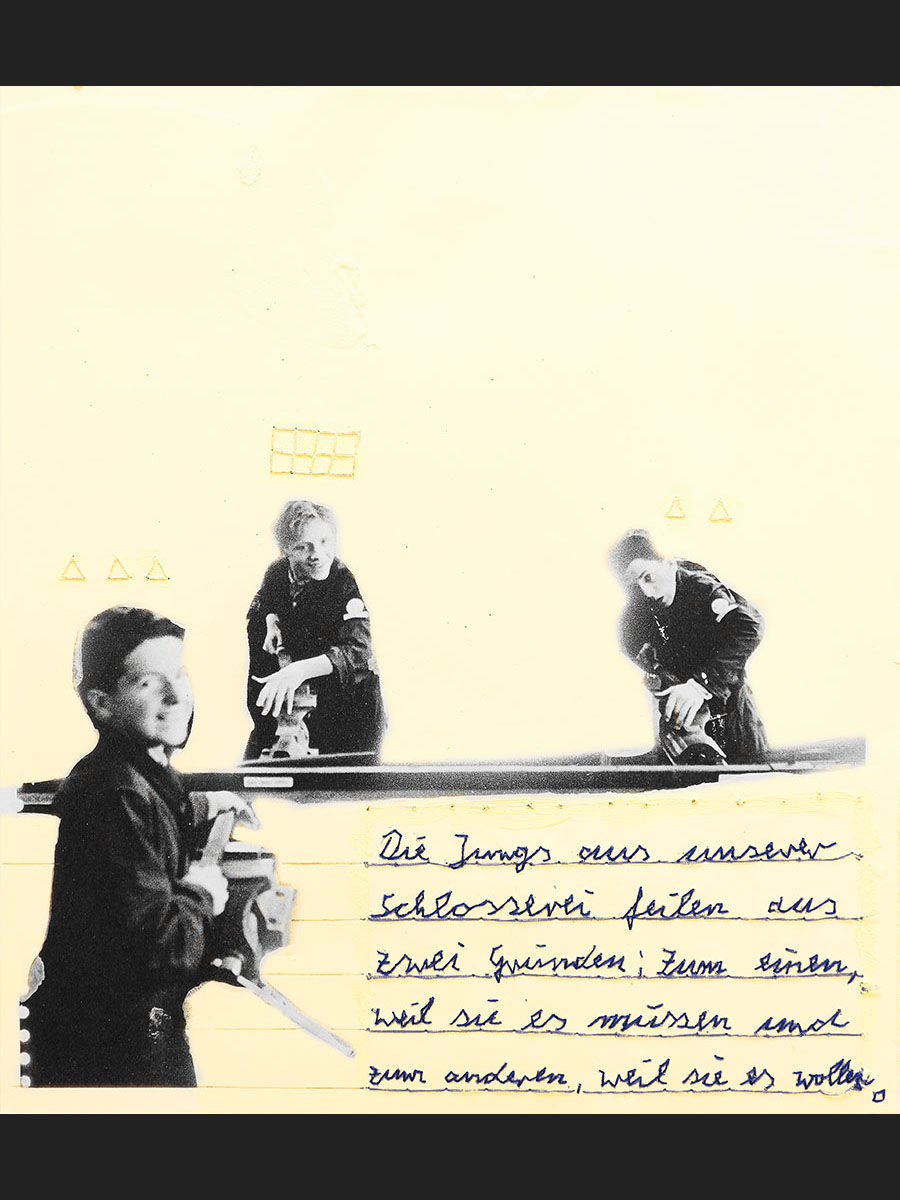 Die Jungs aus unserer
Schlosserei feilen aus
zwei Gründen; Zum einen,
weil sie es müssen und
zum anderen, weil sie es wollen.